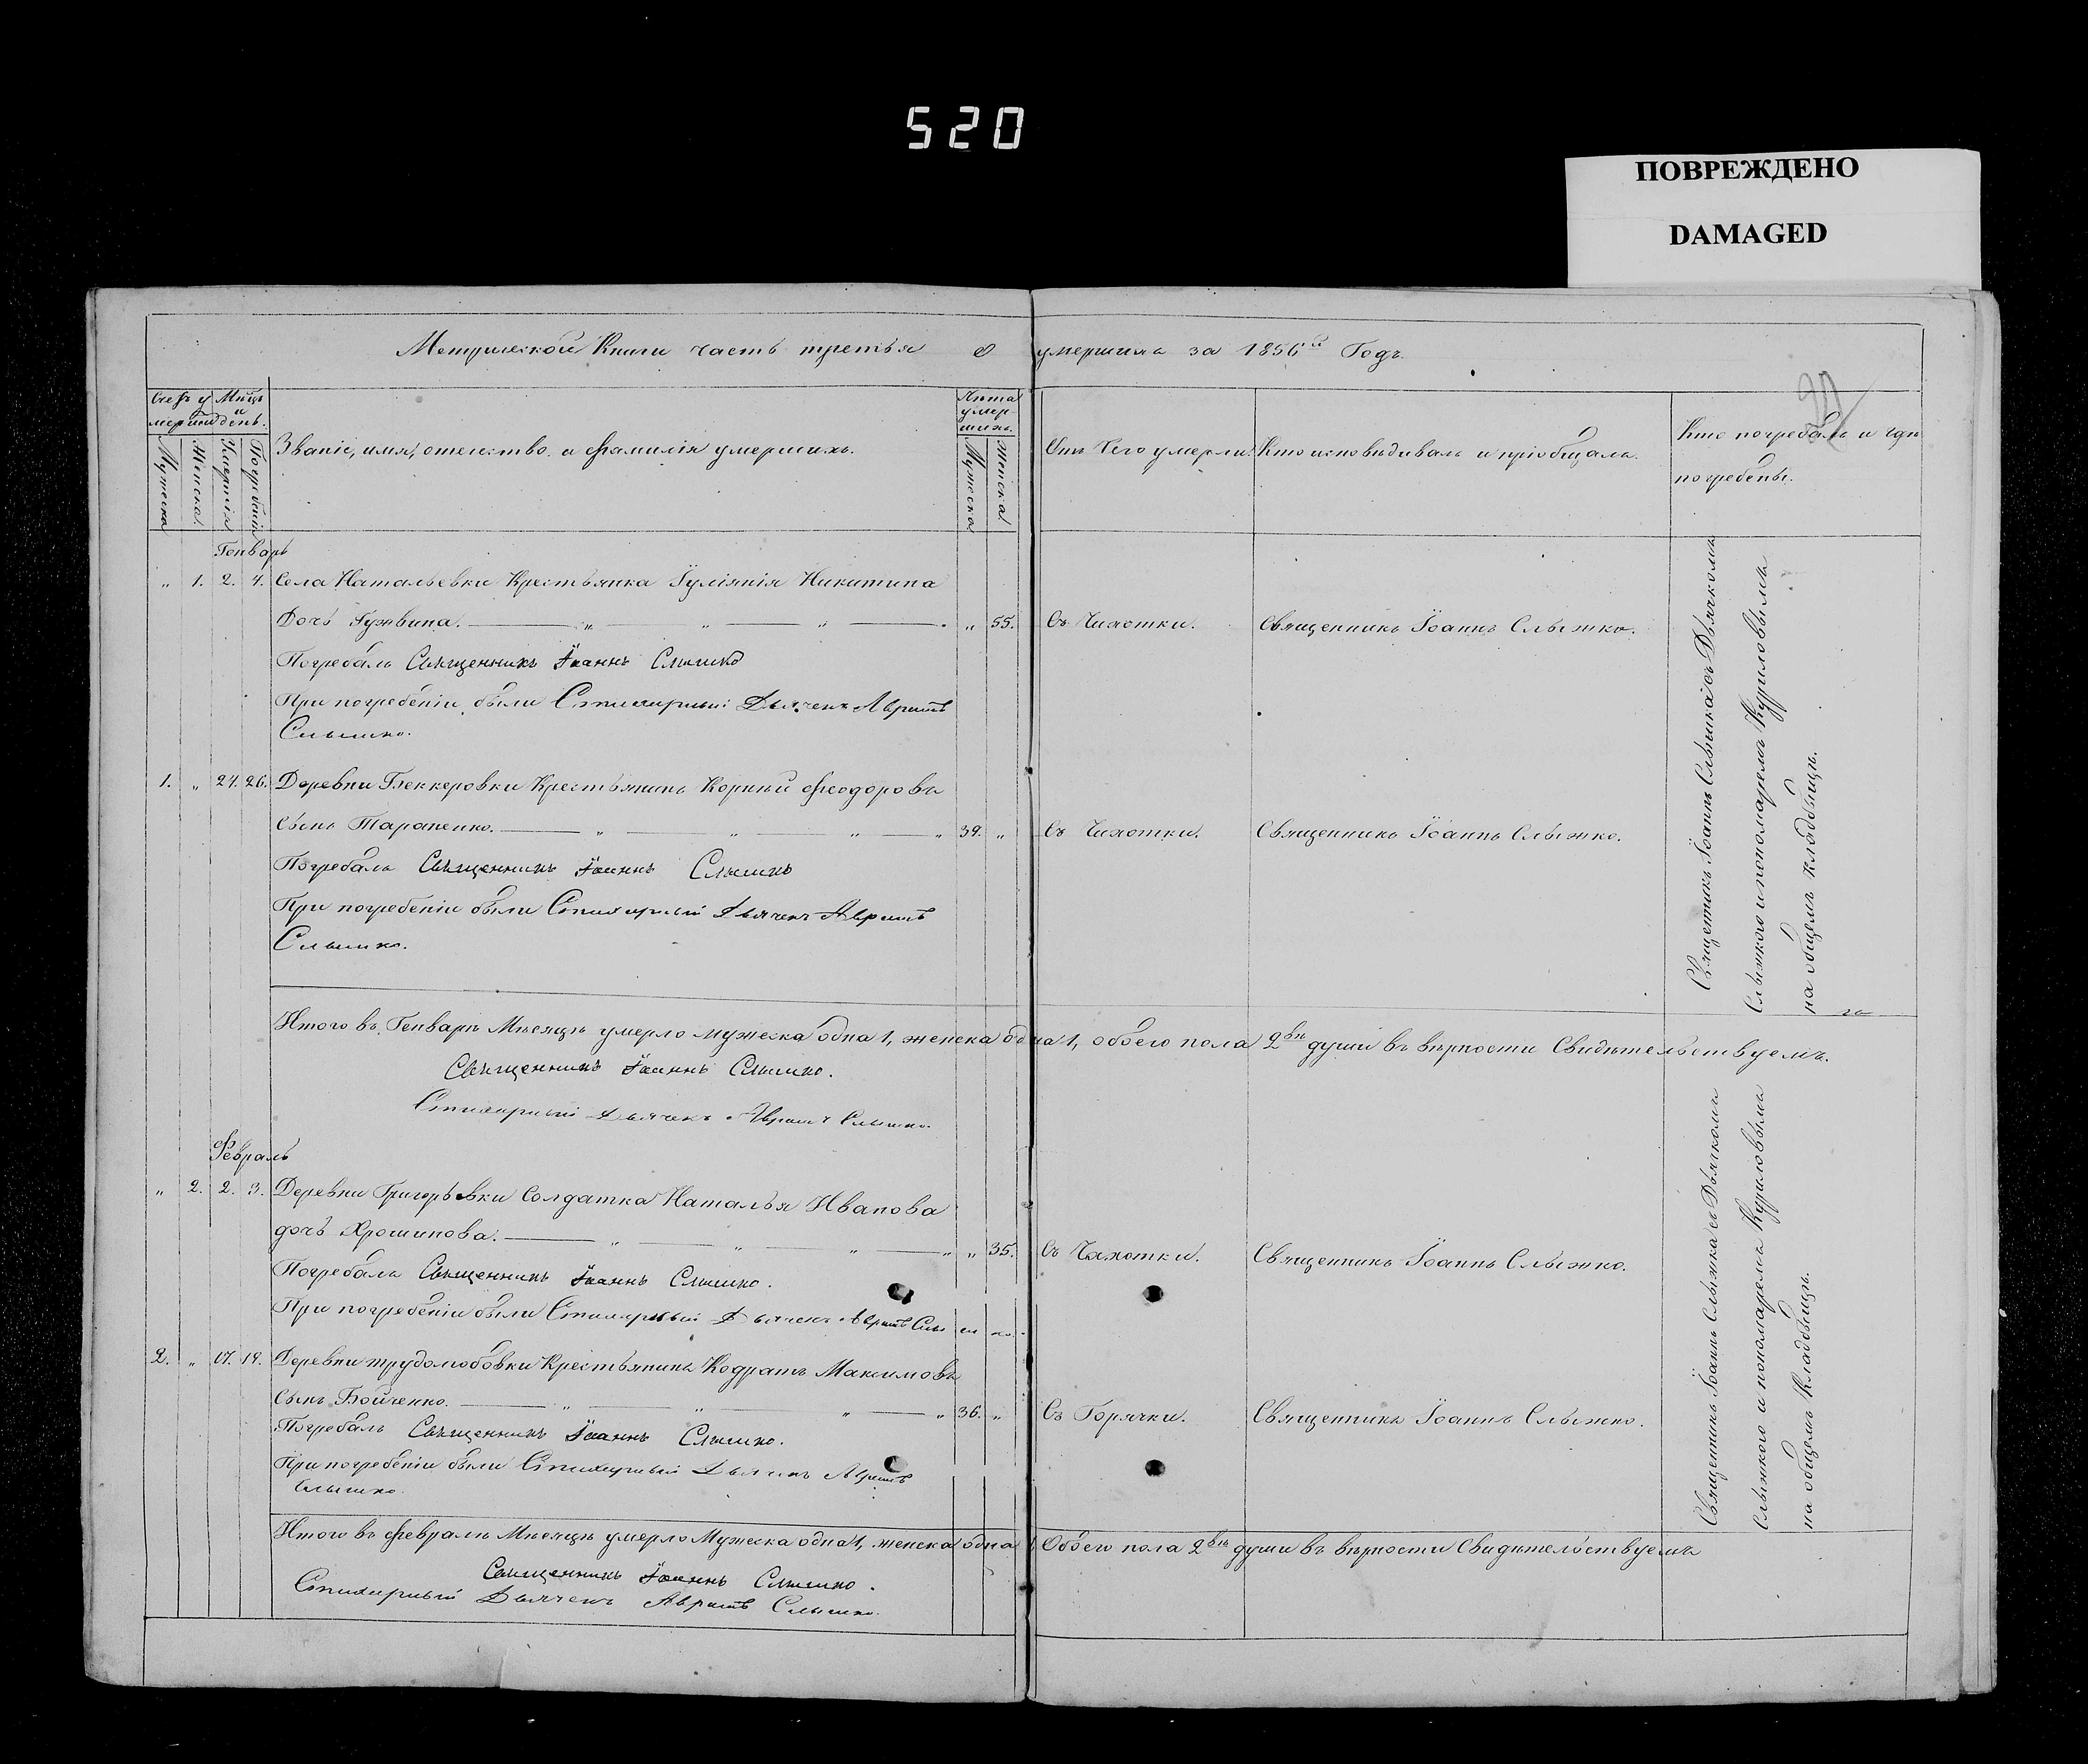 520
ПОВРЕЖДЕНО
DAMAGED
Метрической Книги часть третья о умершихъ за 1856й Годъ.
Счетъ умершихъ
Мѣсцъ и день.
Мужеска
Женска
Смертія
Погребенія
Званіе, имя, отечество и фамилія умершихъ.
Лѣта умершихъ.
Мужеска
Женска
Отъ Чего умерли.
Кто исповѣдывалъ и пріобщалъ.
Кто погребалъ и гдѣ погребены.
Генварь
„ 1. 2. 4. Села Натальевки Крестьянка Іуліянія Никитина
Дочь Гужвина. „ 55. Съ Чихотки. Священникъ Іоаннъ Слыжко.
Погребалъ Священникъ Іоаннъ Слышко
При погребеніи были Стихарный Дьячекъ
Слышко.
1. „ 24. 26. Деревни Беккеровки Крестьянинъ Корній Феодоровъ
Сынъ Тараненко. 39. „ Съ Чихотки. Священникъ Іоаннъ Слыжко.
Погребалъ Священникъ Іоаннъ Слышко
При погребеніи были Стихарный Дьячекъ
Слышко.
Священникъ Іоаннъ Слыжка съ Дьячкомъ
Слыжкою и пономаремъ Куриловымъ
на общемъ кладбищѣ.
Итого въ Генварѣ Мѣсяцѣ умерло мужеска одна 1, женска одна 1, обоего пола 2вѣ души въ вѣрности Свидѣтельствуемъ.
Священникъ Іоаннъ Слышко.
Стихарный Дьячекъ Слышко.
Февраль
„ 2. 2. 3. Деревни Григорьевки Солдатка Наталья Иванова
дочь Хрошинова. „ 35. Съ Чихотки. Священникъ Іоаннъ Слыжко.
Погребалъ Священникъ Іоаннъ Слышко.
При погребеніи были Стихарный Дьячекъ Слышко.
2. „ 17. 19. Деревни трудолюбовки Крестьянинъ Кодратъ Максимовъ
Сынъ Бойченко. 36. „ Съ Горячки. Священникъ Іоаннъ Слыжко.
Погребалъ Священникъ Іоаннъ Слышко.
При погребеніи были Стихарный Дьячекъ
Слышко.
Священникъ Іоаннъ Слыжка съ Дьячкомъ
Слыжкою и пономаремъ Куриловымъ
на общемъ Кладбищѣ.
Итого въ Февралѣ Мѣсяцѣ умерло Мужеска одна 1, женска одна 1 Обоего пола 2вѣ души въ вѣрности Свидѣтельствуемъ
Священникъ Іоаннъ Слышко.
Стихарный Дьячекъ Слышко.